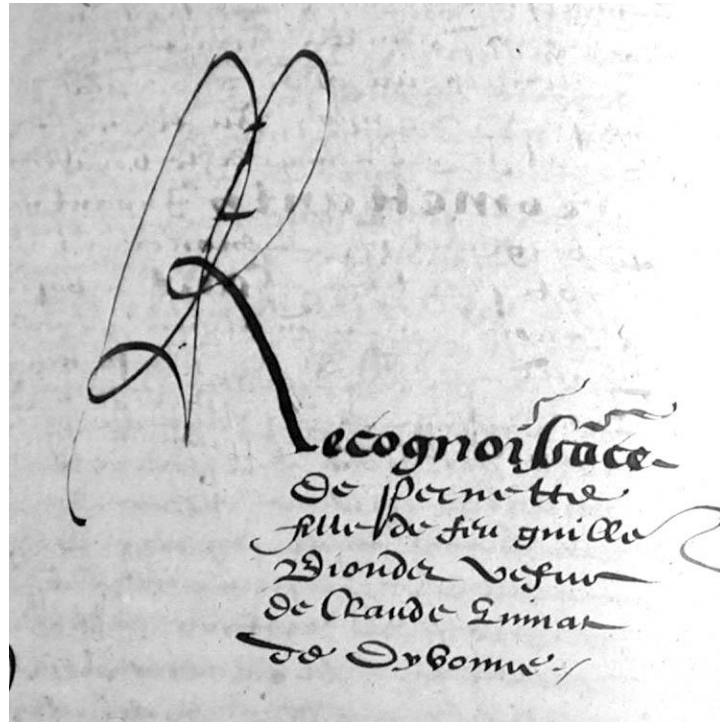 Recognoissāce
de pernette
fille de feu guille
Biondet vefue
de Claude
de Dyvonne